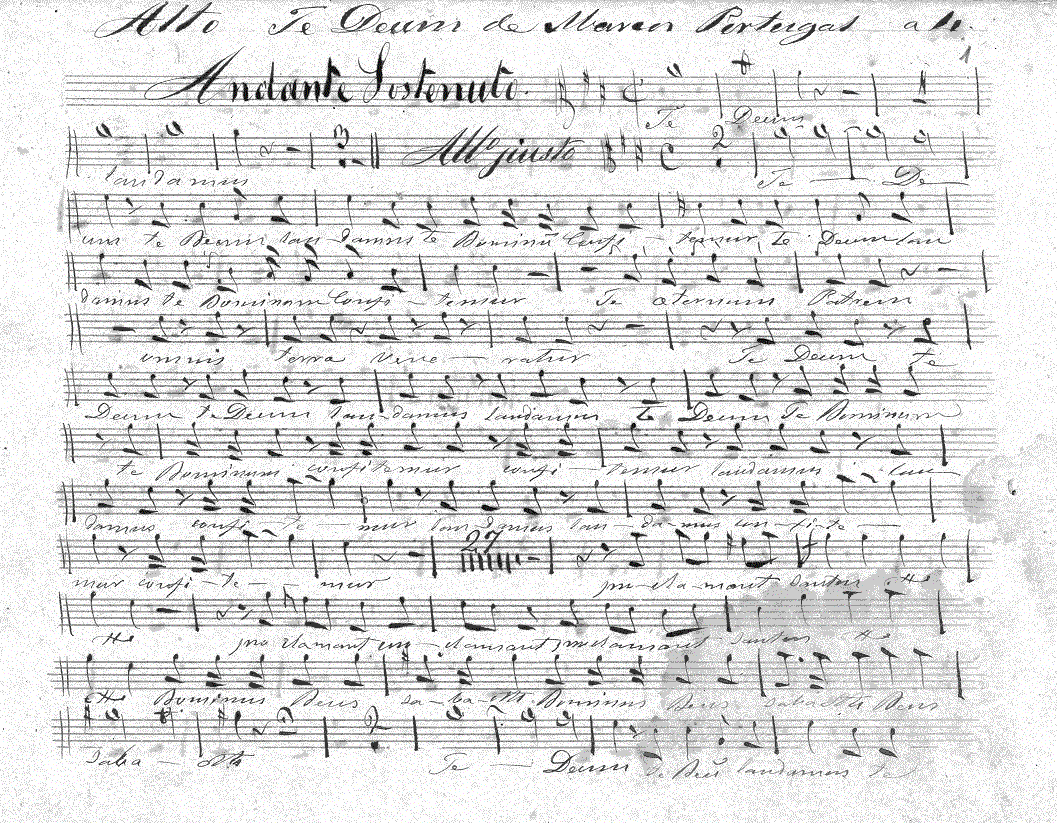 Alto Te Deum de Marcos Portugal a 4.
1
Andante Sostenuto. Te Deum
laudamus 3 Allº giusto 2 Te — De —
um te Deum lau-damus te Dominū confi — temur, te Deum lau
damus te Dominum confi — temur Te æternum Patrem
omnis terra vene — ratur Te Deum te
Deum te Deum lau-damus laudamus te Deum Te Dominum
te Dominum confitemur confi — temur laudamus lau
damus confi — te — mur lau-damus lau — da — mus con — fi — te —
mur confi — te — mur 27 pro-cla-mant Santus
proclamant pro — clamant proclamant Santus
Dominus Deus sa — ba — oth Dominus Deus sabaoth Deus
Saba — oth 2 Te — Deum te Deū laudamus te